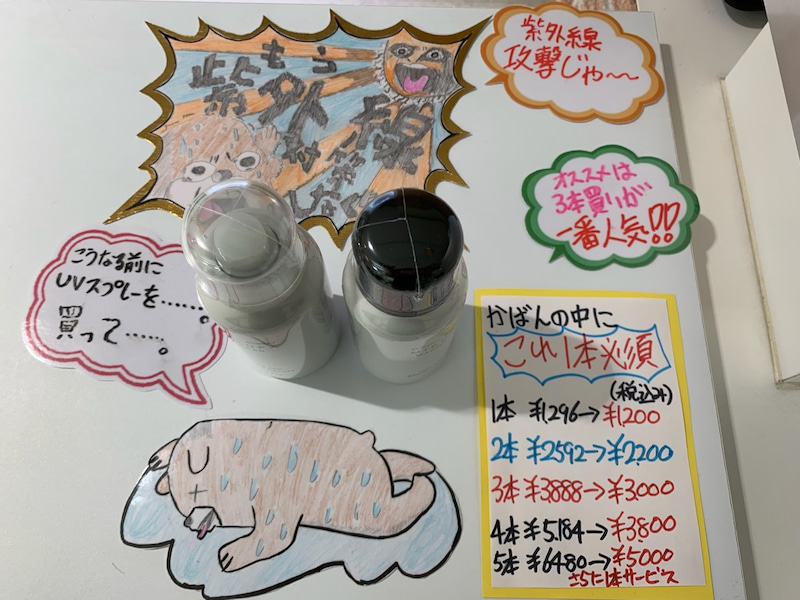 もう
紫外線
紫外線
攻撃じゃ〜〜
オススメは
3本買いが
一番人気!!
こうなる前に
UVスプレーを………
買って……。
かばんの中に
これ1本必須
(税込み)
1本 ¥1,296→¥1,200
2本 ¥2592→¥2,200
3本 ¥3888→¥3000
4本 ¥5,184→¥3,800
5本 ¥6480→¥5,000
さらに1本サービス